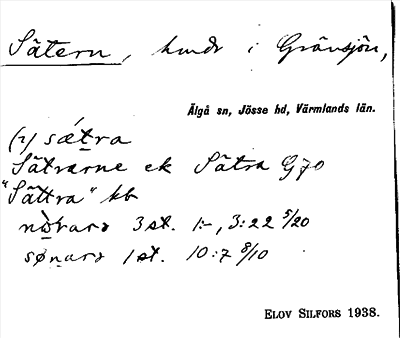 Sätern, hmdr i Gränsjön,
Älgå sn, Jösse hd, Värmlands län.
(2) sǽtra
Sätrarne ek Sätra G70
"Sättra" kb
nò̱rarɔ 3 st. 1:-, 3:22 5/20
sø̱narɔ 1 st. 10:7 8/10
ELOV SILFORS 1938.